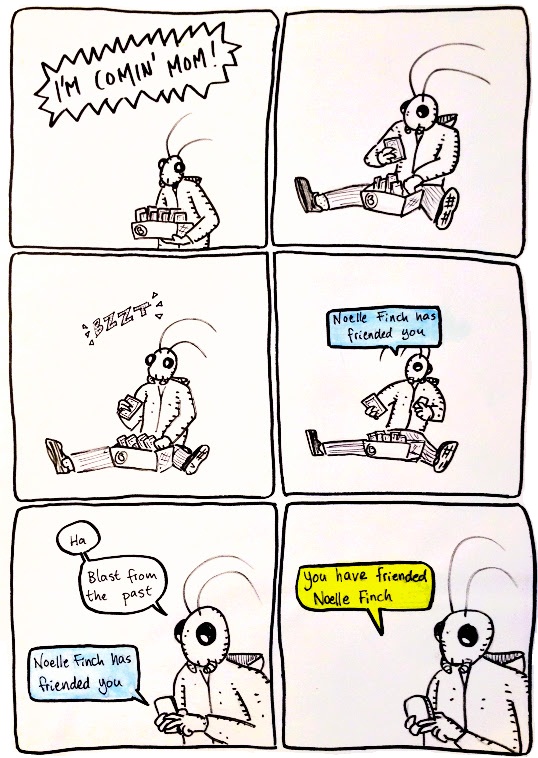 I'M COMIN' MOM!
BZZT
Noelle Finch has
friended you
Ha
Blast from
the past
Noelle Finch has
friended you
You have friended
Noelle Finch